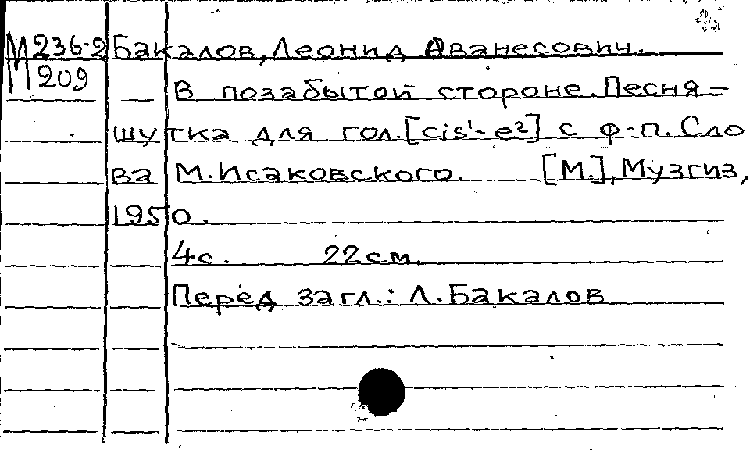 М236-2 Бакалов, Леонид Аванесович.
М209
В позабытой стороне. Песня-
шутка для гол. [cis¹-e²] с ф-п. Сло
ва М. Исаковского. [М.], Музгиз,
1950.
4с. 22см.
Перед загл.: Л. Бакалов